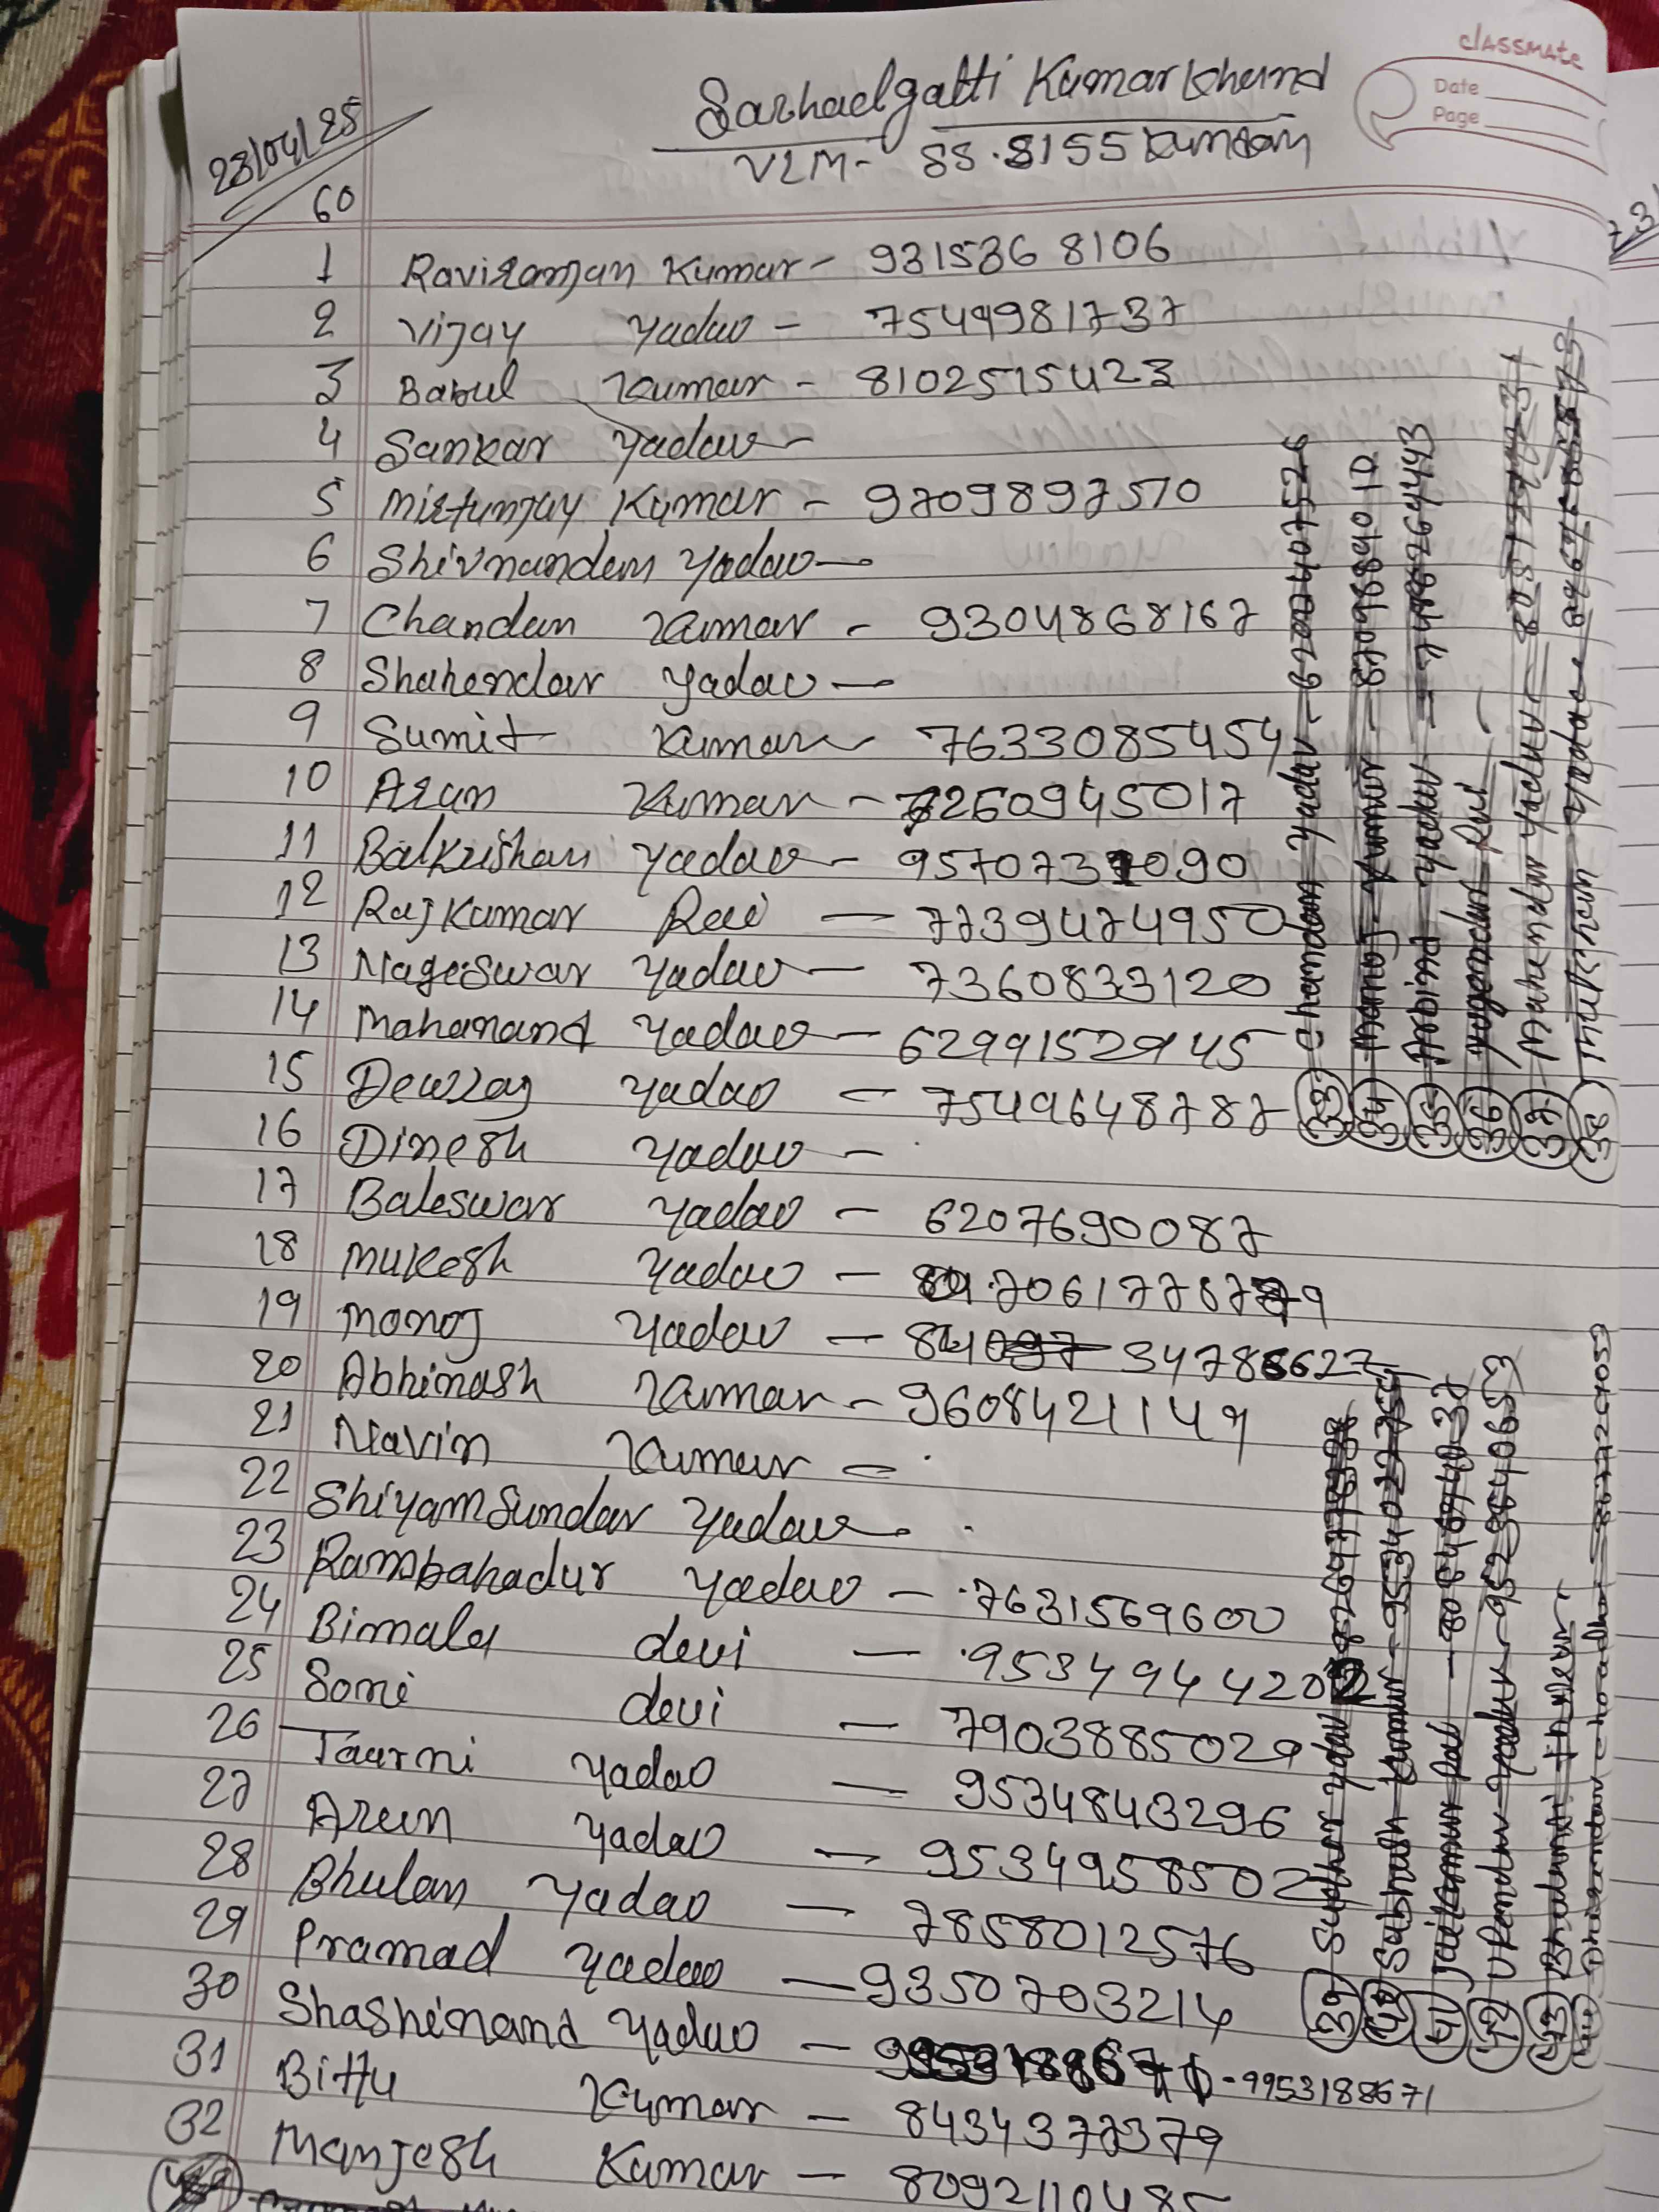 classmate
Date
Page
23/04/25
Sarhadgatti Kumarkhand
VLM- 88.8155 Kundan
60
1 Raviranjan Kumar - 9315368106
2 Vijay Yadav - 7549981737
3 Babul Kumar - 8102515423
4 Sankar Yadav -
5 Mirtunjay Kumar - 9709897510
6 Shivnandan Yadav -
7 Chandan Kumar - 9304868167
8 Shahendar Yadav -
9 Sumit Kumar - 7633085454
10 Arun Kumar - 6260945017
11 Balkrishan Yadav - 9570731090
12 Rajkumar Rai - 7739474950
13 Nageswar Yadav - 7360833120
14 Mahanand Yadav - 62991529145
15 Dewraj Yadav - 7549648787
16 Dinesh Yadav -
17 Baleswar Yadav - 6207690087
18 Mukesh Yadav -
19 Manoj Yadav -
20 Abhinash Kumar - 9608421149
21 Navin Kumar -
22 Shiyamsundar Yadav -
23 Rambahadur Yadav - 7631569600
24 Bimala devi -
25 Soni devi - 7903885029
26 Taarni Yadav - 9534843296
27 Arun Yadav - 9534958502
28 Bhulan Yadav - 7858012576
29 Pramad Yadav - 9350703214
30 Shashinand Yadav - 9953188671
31 Bittu Kumar - 8434377379
32 Manjesh Kumar - 8092110485
33 Chandan Yadav - 6200407526
34 Manoj Kumar - 8709889010
35 Arbind Yadav - 7488264443
36 Yugendar Rai -
37 Mahendar Yadav -
38 Mukesh Yadav -
39 Yadav
40 Subhash Kumar -
41 Jaikumar Rai -
42 Upendar Yadav - 9529640653
43
44